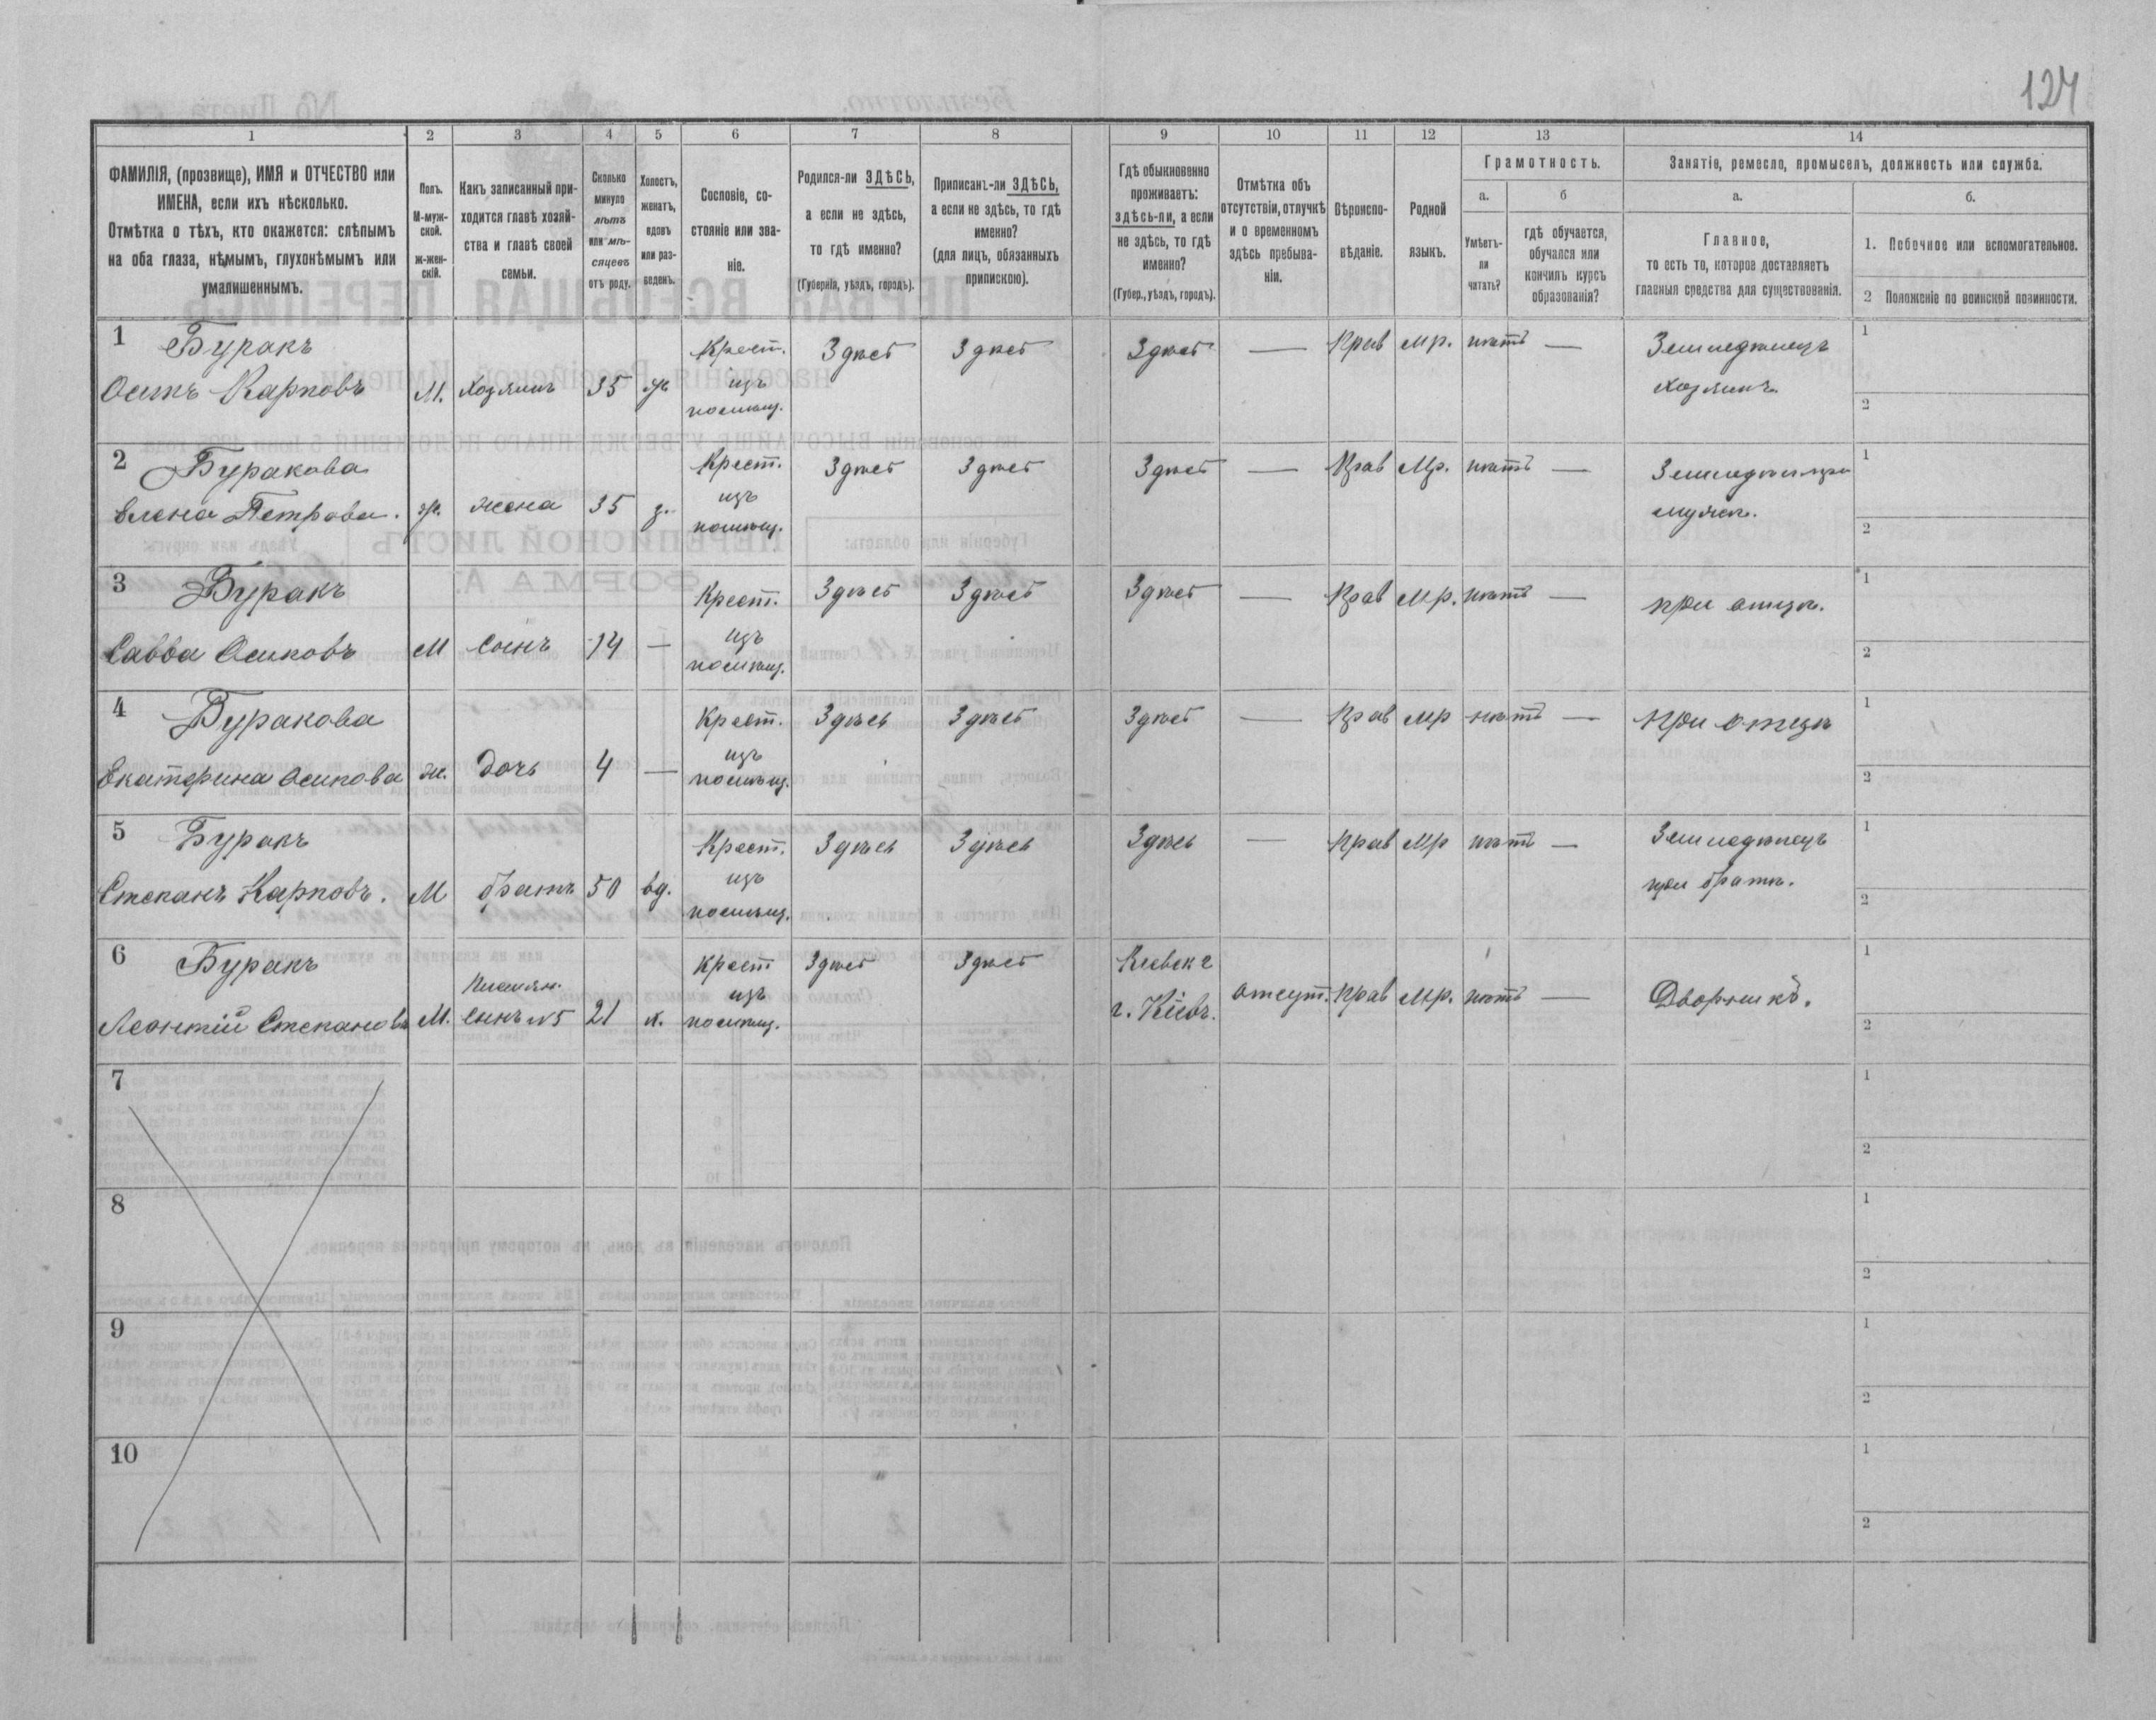 127
1 2 3 4 5 6 7 8 9 10 11 12 13 14
ФАМИЛІЯ, (прозвище), ИМЯ и ОТЧЕСТВО или
ИМЕНА, если ихъ нѣсколько.
Отмѣтка о тѣхъ, кто окажется: слѣпымъ
на оба глаза, нѣмымъ, глухонѣмымъ или
умалишеннымъ.
Полъ.
М-муж-
ской.
Ж-жен-
скій.
Какъ записанный при-
ходится главѣ хозяй-
ства и главѣ своей
семьи.
Сколько
минуло
лѣтъ
или мѣ-
сяцевъ
отъ роду.
Холостъ,
женатъ,
вдовъ
или раз-
веденъ.
Сословіе, со-
стояніе или зва-
ніе.
Родился-ли ЗДѢСЬ,
а если не здѣсь,
то гдѣ именно?
(Губернія, уѣздъ, городъ).
Приписанъ-ли ЗДѢСЬ,
а если не здѣсь, то гдѣ
именно?
(для лицъ, обязанныхъ
припискою).
Гдѣ обыкновенно
проживаетъ:
здѣсь-ли, а если
не здѣсь, то гдѣ
именно?
(Губер., уѣздъ, городъ).
Отмѣтка объ
отсутствіи, отлучкѣ
и о временномъ
здѣсь пребыва-
ніи.
Вѣроиспо-
вѣданіе.
Родной
языкъ.
Грамотность.
а.
Умѣетъ-
ли
читать?
б
гдѣ обучается,
обучался или
кончилъ курсъ
образованія?
Занятіе, ремесло, промыселъ, должность или служба.
а.
Главное,
то есть то, которое доставляетъ
главныя средства для существованія.
б.
1. Побочное или вспомогательное.
2 Положеніе по воинской повинности.
1 Буракъ Крест. Здѣсь Здѣсь Здѣсь — Прав мр. нѣтъ — Земледѣлецъ 1
Осипъ Карповъ М. Хозяинъ 35 ж. изъ хозяинъ
помѣщ. 2
2 Буракова Крест. Здѣсь Здѣсь Здѣсь — Прав Мр. нѣтъ — 1
Елена Петрова. ж. жена 35 з. изъ
помѣщ. 2
3 Буракъ Крест. Здѣсь Здѣсь Здѣсь — Прав Мр. нѣтъ — при отцѣ. 1
Савва Осиповъ М сынъ 14 — изъ
помѣщ. 2
4 Буракова Крест. Здѣсь Здѣсь Здѣсь — Прав мр нѣтъ — при отцѣ 1
Екатерина Осипова ж. дочь 4 — изъ
помѣщ. 2
5 Буракъ Крест. Здѣсь Здѣсь Здѣсь — Прав Мр нѣтъ — Земледѣлецъ 1
Степанъ Карповъ. М братъ 50 вд. изъ при братѣ.
помѣщ. 2
6 Буракъ Крест Здѣсь Здѣсь 1
Леонтій Степановъ М. Племян. сынъ №5 21 х. изъ г. Кіевъ. отсут. Прав Мр. нѣтъ — Дворникъ.
помѣщ. 2
7 1
2
8 1
2
9 1
2
10 1
2